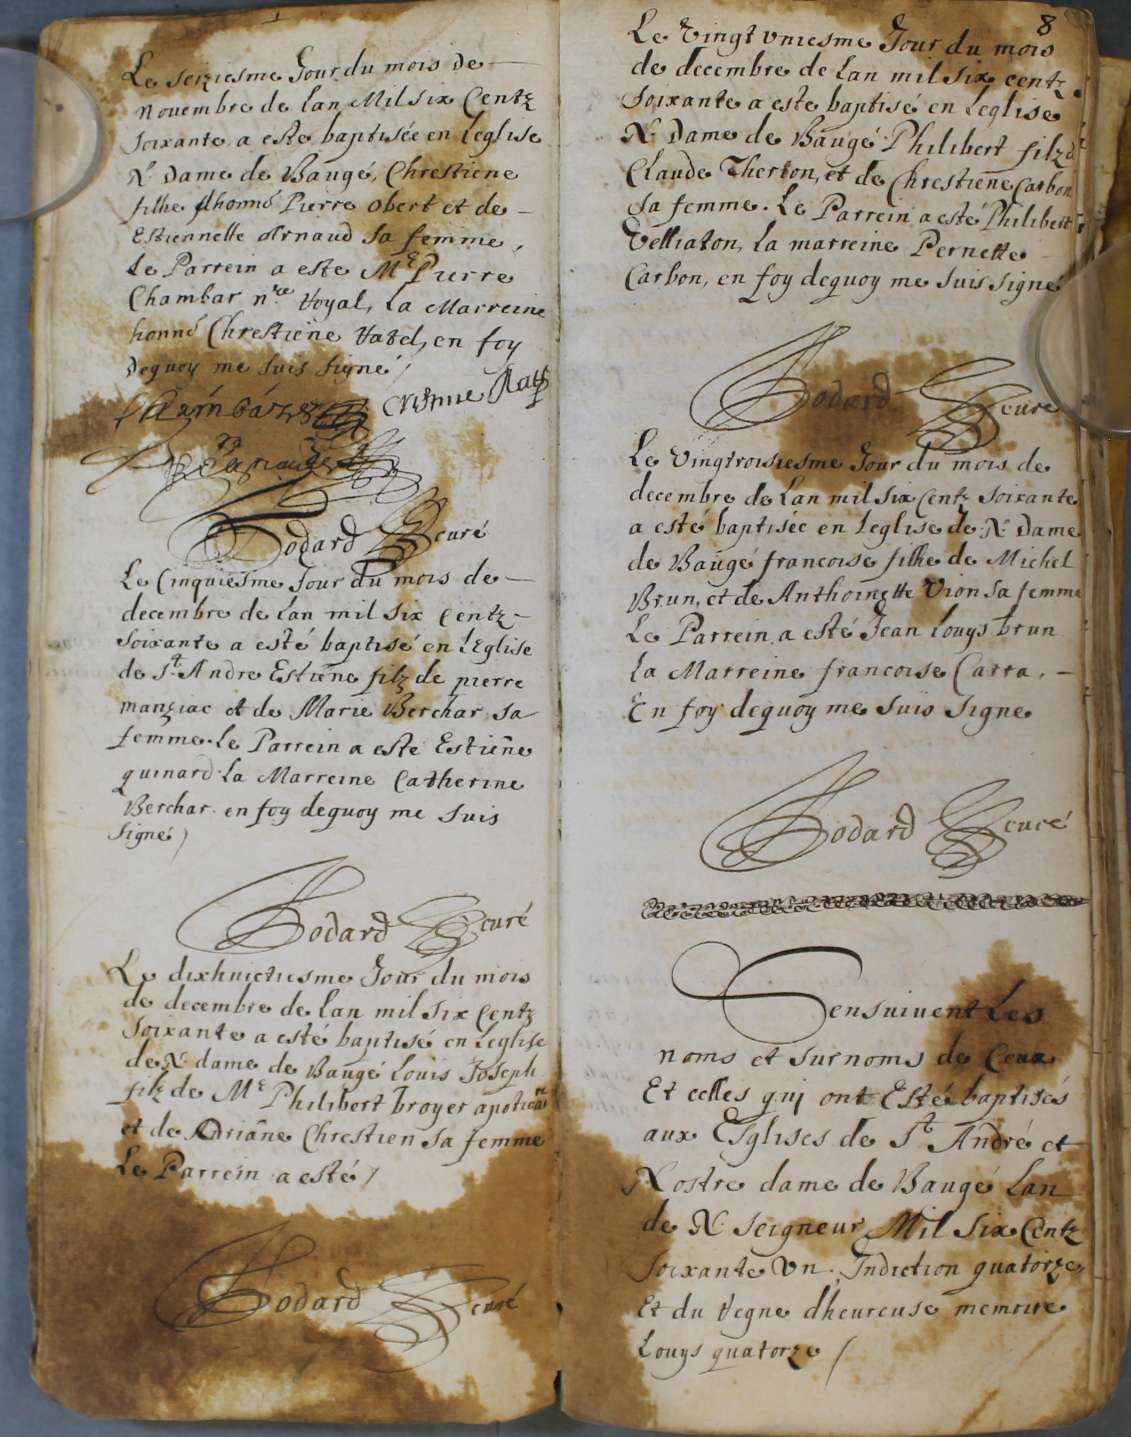 Le seiziesme Jour du mois de
novembre de lan Mil six Centz
soixante a esté baptisée en Leglise
N. Dame de Baugé, Chrestiene
filhe dhonnē Pierre Obert et de
Estiennette Arnaud sa femme,
Le Parrein a este Me Pierre
Chambar nre Royal, La Marreine
honnē Chrestiēne Ratel, en foy
dequoy me suis signé
Bodard curé
Le Cinquiesme Jour du mois de
decembre de Lan mil six Centz
soixante a esté baptisé en LEglise
de St. Andre Estiēne filz de pierre
manziac et de Marie Berchar sa
femme. Le Parrein a este Estiēne
guinard. La Marreine Catherine
Berchar. en foy dequoy me suis
signé
Bodard curé
Le dixhuictiesme Jour du mois
de decembre de Lan mil six Centz
soixante a esté baptisé en Leglise
de N. dame de Baugé Louis Joseph
filz de Me Philibert broyer
et de Adriāne Chrestien sa femme
Le Parrein a esté
Bodard curé
8
Le Vingt uniesme Jour du mois
de decembre de Lan mil six centz
soixante a este baptisé en Leglise
N. Dame de Baugé Philibert filz
Claude Therton, et de Chrestiēne Carbon
sa femme. Le Parrein a esté Philibert
La marreine Pernette
Carbon, en foy dequoy me suis signé
Bodard curé
Le Vingtroisiesme Jour du mois de
decembre de Lan mil six Centz soixante
a esté baptisée en Leglise de N. Dame
de Baugé francoise filhe de Michel
Brun, et de Anthoinette Vion sa femme
Le Parrein a esté Jean Louys brun
La Marreine francoise Carra.
En foy dequoy me suis signe
Bodard curé
Sensuivent Les
noms et surnoms de Ceux
Et celles qui ont Esté baptisés
aux Esglises de St André et
Nostre dame de Baugé Lan
de N. seigneur Mil six Centz
soixante Un. Indiction quatorze
Et du regne dheureuse memoire
Louys quatorze